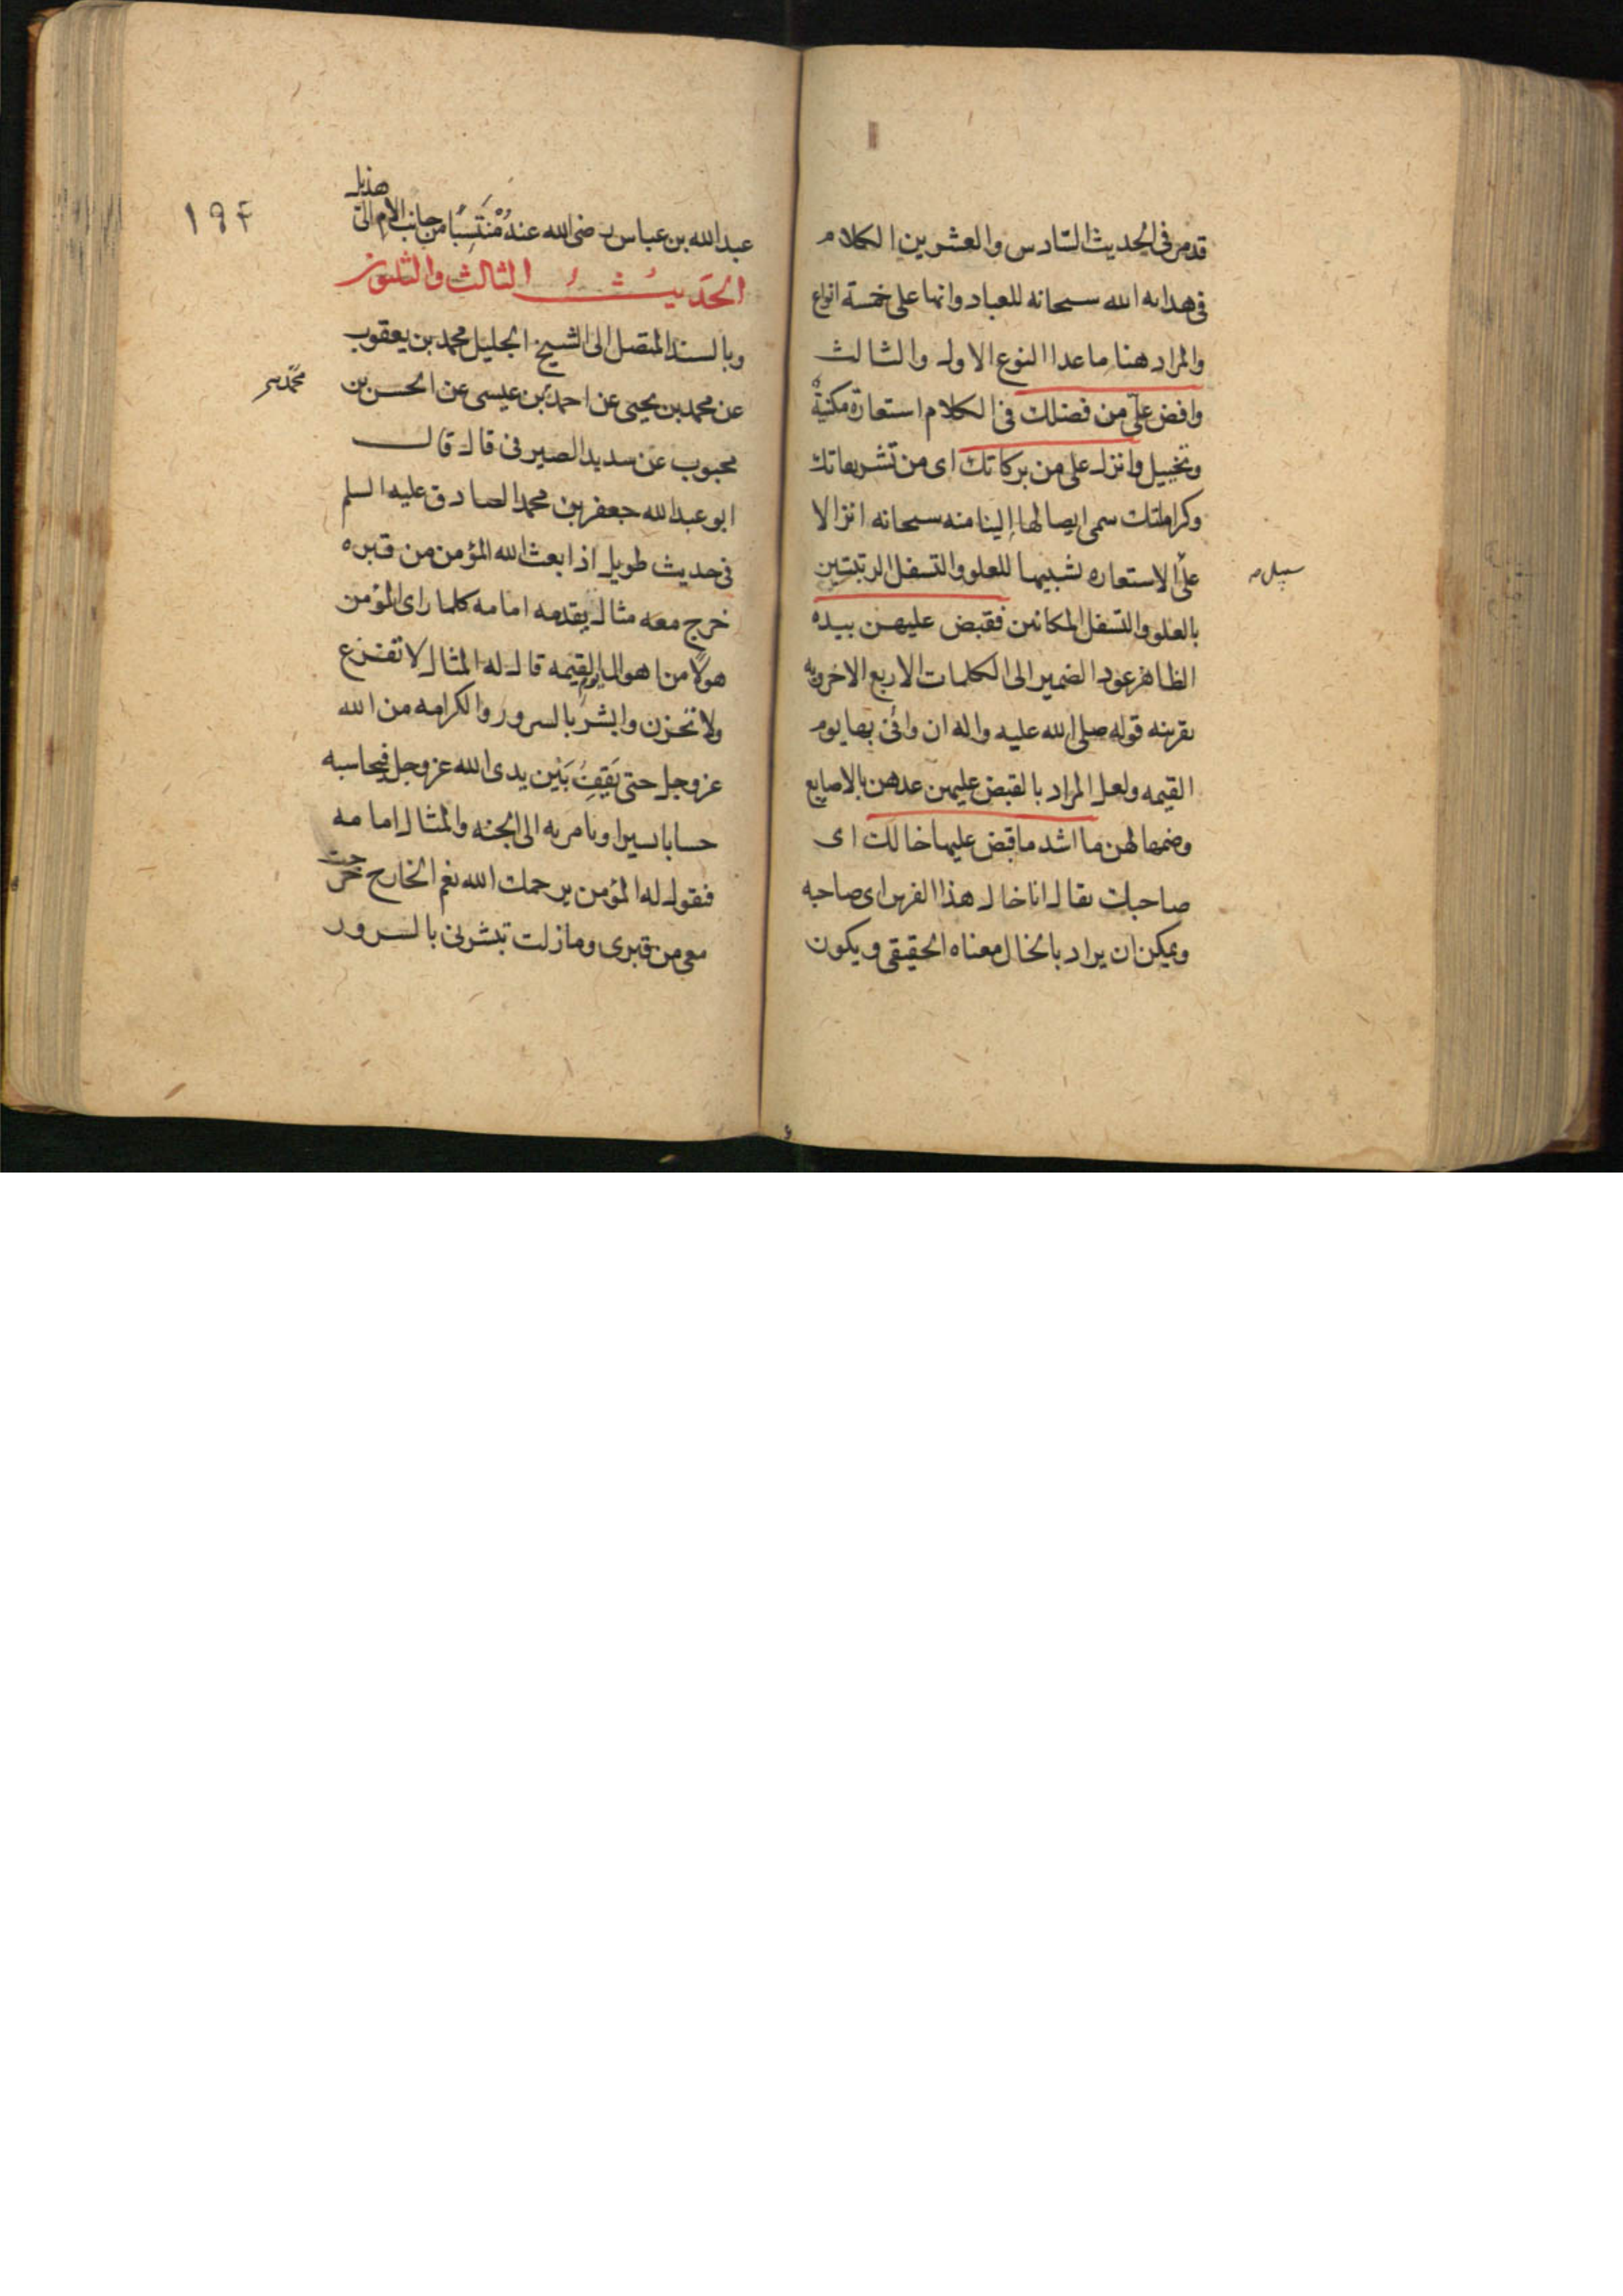 قدمر فى الحديث السّادس والعشرين الكلام
فى هدايه الله سبحانه للعباد وانها على خمسة انواع
والمراد هنا ما عدا النوع الاول والثالث
وافض علىّ من فضلك فى الكلام استعارة مكنيةٌ
وتخييل وانزل على من بركاتك اى من تشريفاتك
وكراماتك سمى ايصالها الينا منه سبحانه انزالا
على الاستعاره تشبيها للعلو والتسفل الرتبتين
سبيل صح
بالعلو والتسفل المكانين فقبض عليهن بيده
الظاهر عود الضمير الى الكلمات الاربع الاخرويه
بقرينه قوله صلى الله عليه واله ان وافى بها يوم
القيمه ولعل المراد بالقبض عليهن عدهن بالاصابع
وضمها لهن ما اشد ما قبض عليها خالك اى
صاحبك يقال انا خال هذا الفرس اى صاحبه
ويمكن ان يراد بالخال معناه الحقيقى ويكون
۱۹۴
هذيل
عبد الله بن عباس رضى الله عنهُ مُنْتَسِبًا من جانب الام الى
الحَديثُ الثالث والثلثون
وبالسند المتصل الى الشيخ الجليل محمد بن يعقوب
عن محمد بن يحيى عن احمد بن عيسى عن الحسن بن
محمد بن
محبوب عن سدير الصيرفى قال قال
ابو عبد الله جعفر بن محمد الصادق عليه السلم
فى حديث طويل اذا بعث الله المؤمن من قبره
خرج معه مثال يقدمه امامه كلما راى المؤمن
هولًا من اهوال يوم القيمه قال له المثال لا تفزع
ولا تحزن وابشر بالسرور والكرامه من الله
عز وجل حتى يَقِفَ بَيْن يدى الله عز وجل فيحاسبه
حسابا يسيرا ويامر به الى الجنه والمثال امامه
فيقول له المؤمن يرحمك الله نعم الخارج خرجت
معى من قبرى وما زلت تبشرنى بالسرور